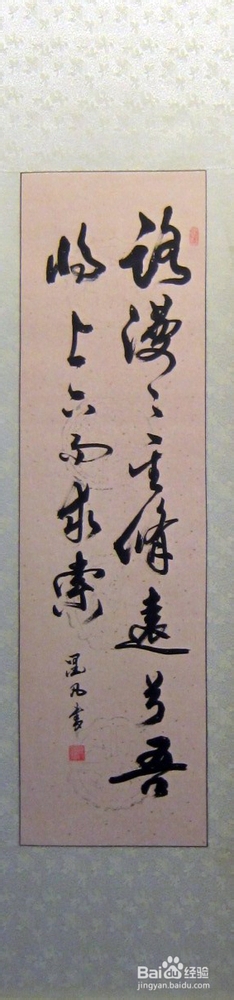 路漫〻其修遠兮吾
将上下而求索
Bai du 经验
jingyan.baidu.com